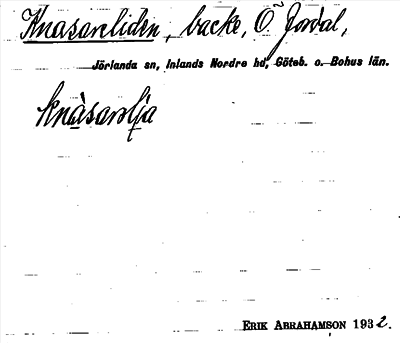 Knasareliden, backe, Ö. Jordal,
Jörlanda sn, Inlands Nordre hd, Göteb. o. Bohus län.
knàsarəlia
ERIK ABRAHAMSON 1932.